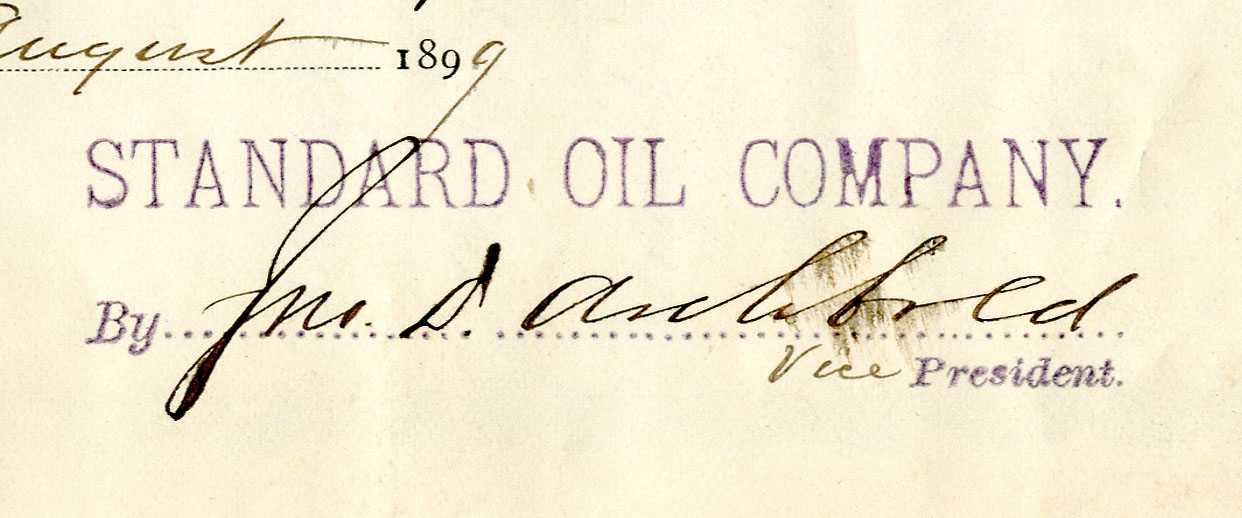 August 1899
STANDARD OIL COMPANY.
By Jno. D. Archbold
Vice President.